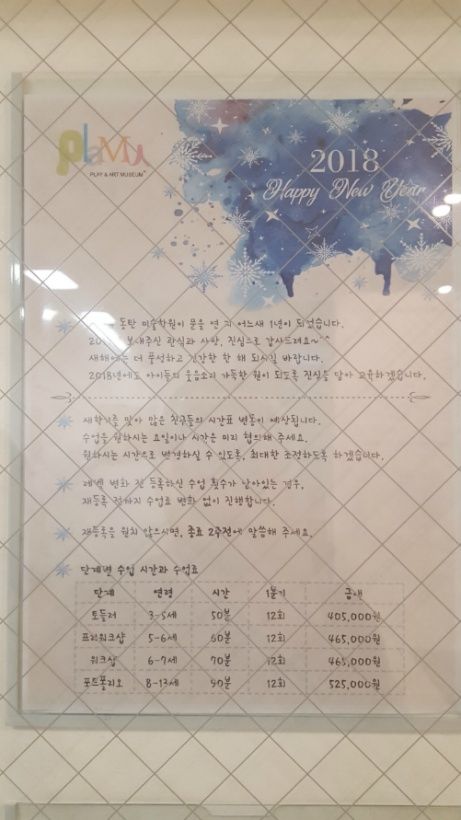 plaMu
PLAY & ART MUSEUM
2018
Happy New Year
동탄 미술학원이 문을 연 지 어느새 1년이 되었습니다.
보내주신 관심과 사랑, 진심으로 감사드려요~^^
새해에는 더 풍성하고 건강한 한 해 되시길 바랍니다.
2018년에도 아이들의 웃음소리 가득한 원이 되도록 진심을 담아 교육하겠습니다.
새학기를 맞아 많은 친구들의 시간표 변동이 예상됩니다.
수업을 원하시는 요일이나 시간은 미리 협의해 주세요.
원하시는 시간으로 변경하실 수 있도록, 최대한 조정하도록 하겠습니다.
레벨 변화 전 등록하신 수업 횟수가 남아있는 경우,
재등록 전까지 수업료 변화 없이 진행합니다.
재등록을 원치 않으시면, 종료 2주전에 말씀해 주세요.
단계별 수업 시간과 수업료
단계 연령 시간 1분기 금액
토들러 3-5세 50분 12회 405,000원
프리워크샵 5-6세 60분 12회 465,000원
워크샵 6-7세 70분 12회 465,000원
포트폴리오 8-13세 90분 12회 525,000원